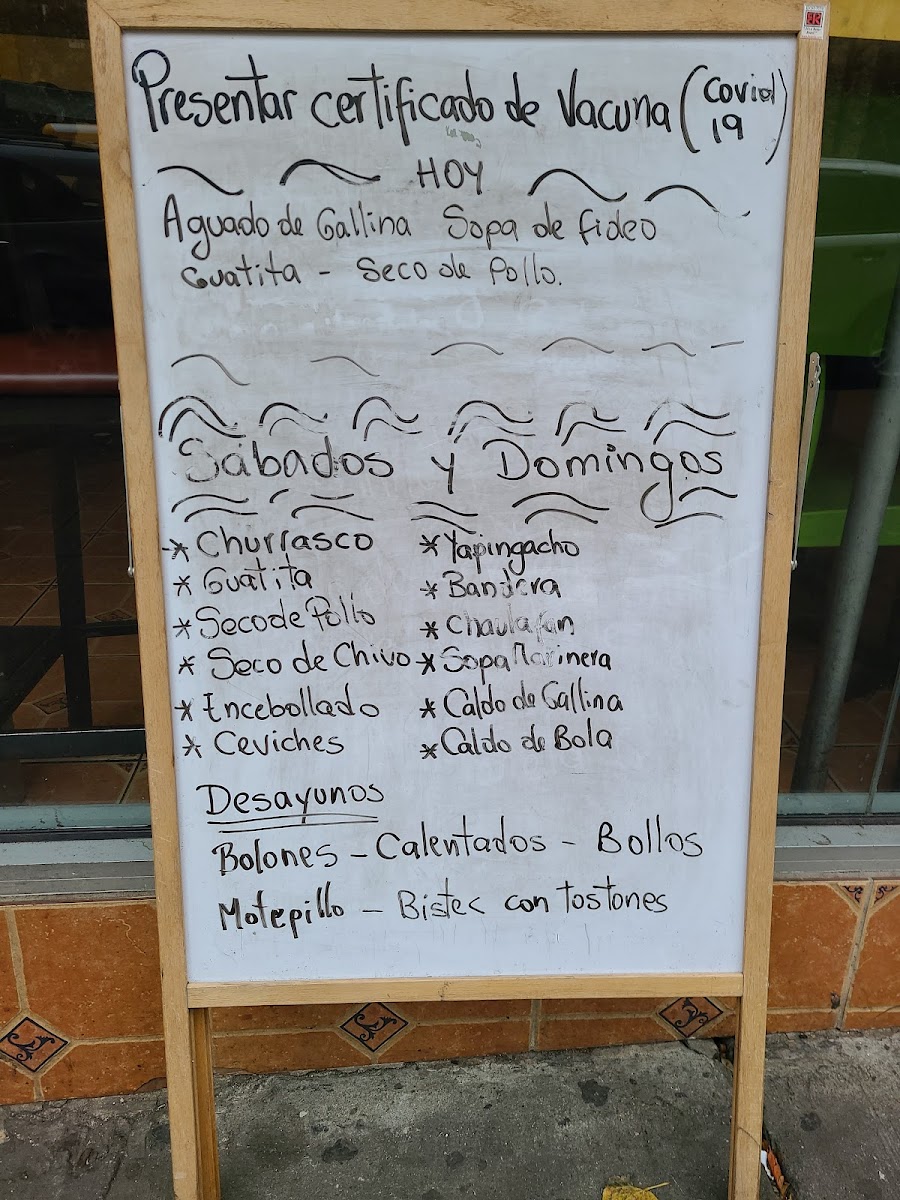 Presentar certificado de Vacuna (Covid 19)
HOY
Aguado de Gallina Sopa de fideo
Guatita - Seco de Pollo.
Sábados y Domingos
* Churrasco
* Guatita
* Seco de Pollo
* Seco de Chivo
* Encebollado
* Ceviches
* Yapingacho
* Bandera
* Chaulafan
* Sopa Marinera
* Caldo de Gallina
* Caldo de Bola
Desayunos
Bolones - Calentados - Bollos
Motepillo - Bistec con tostones